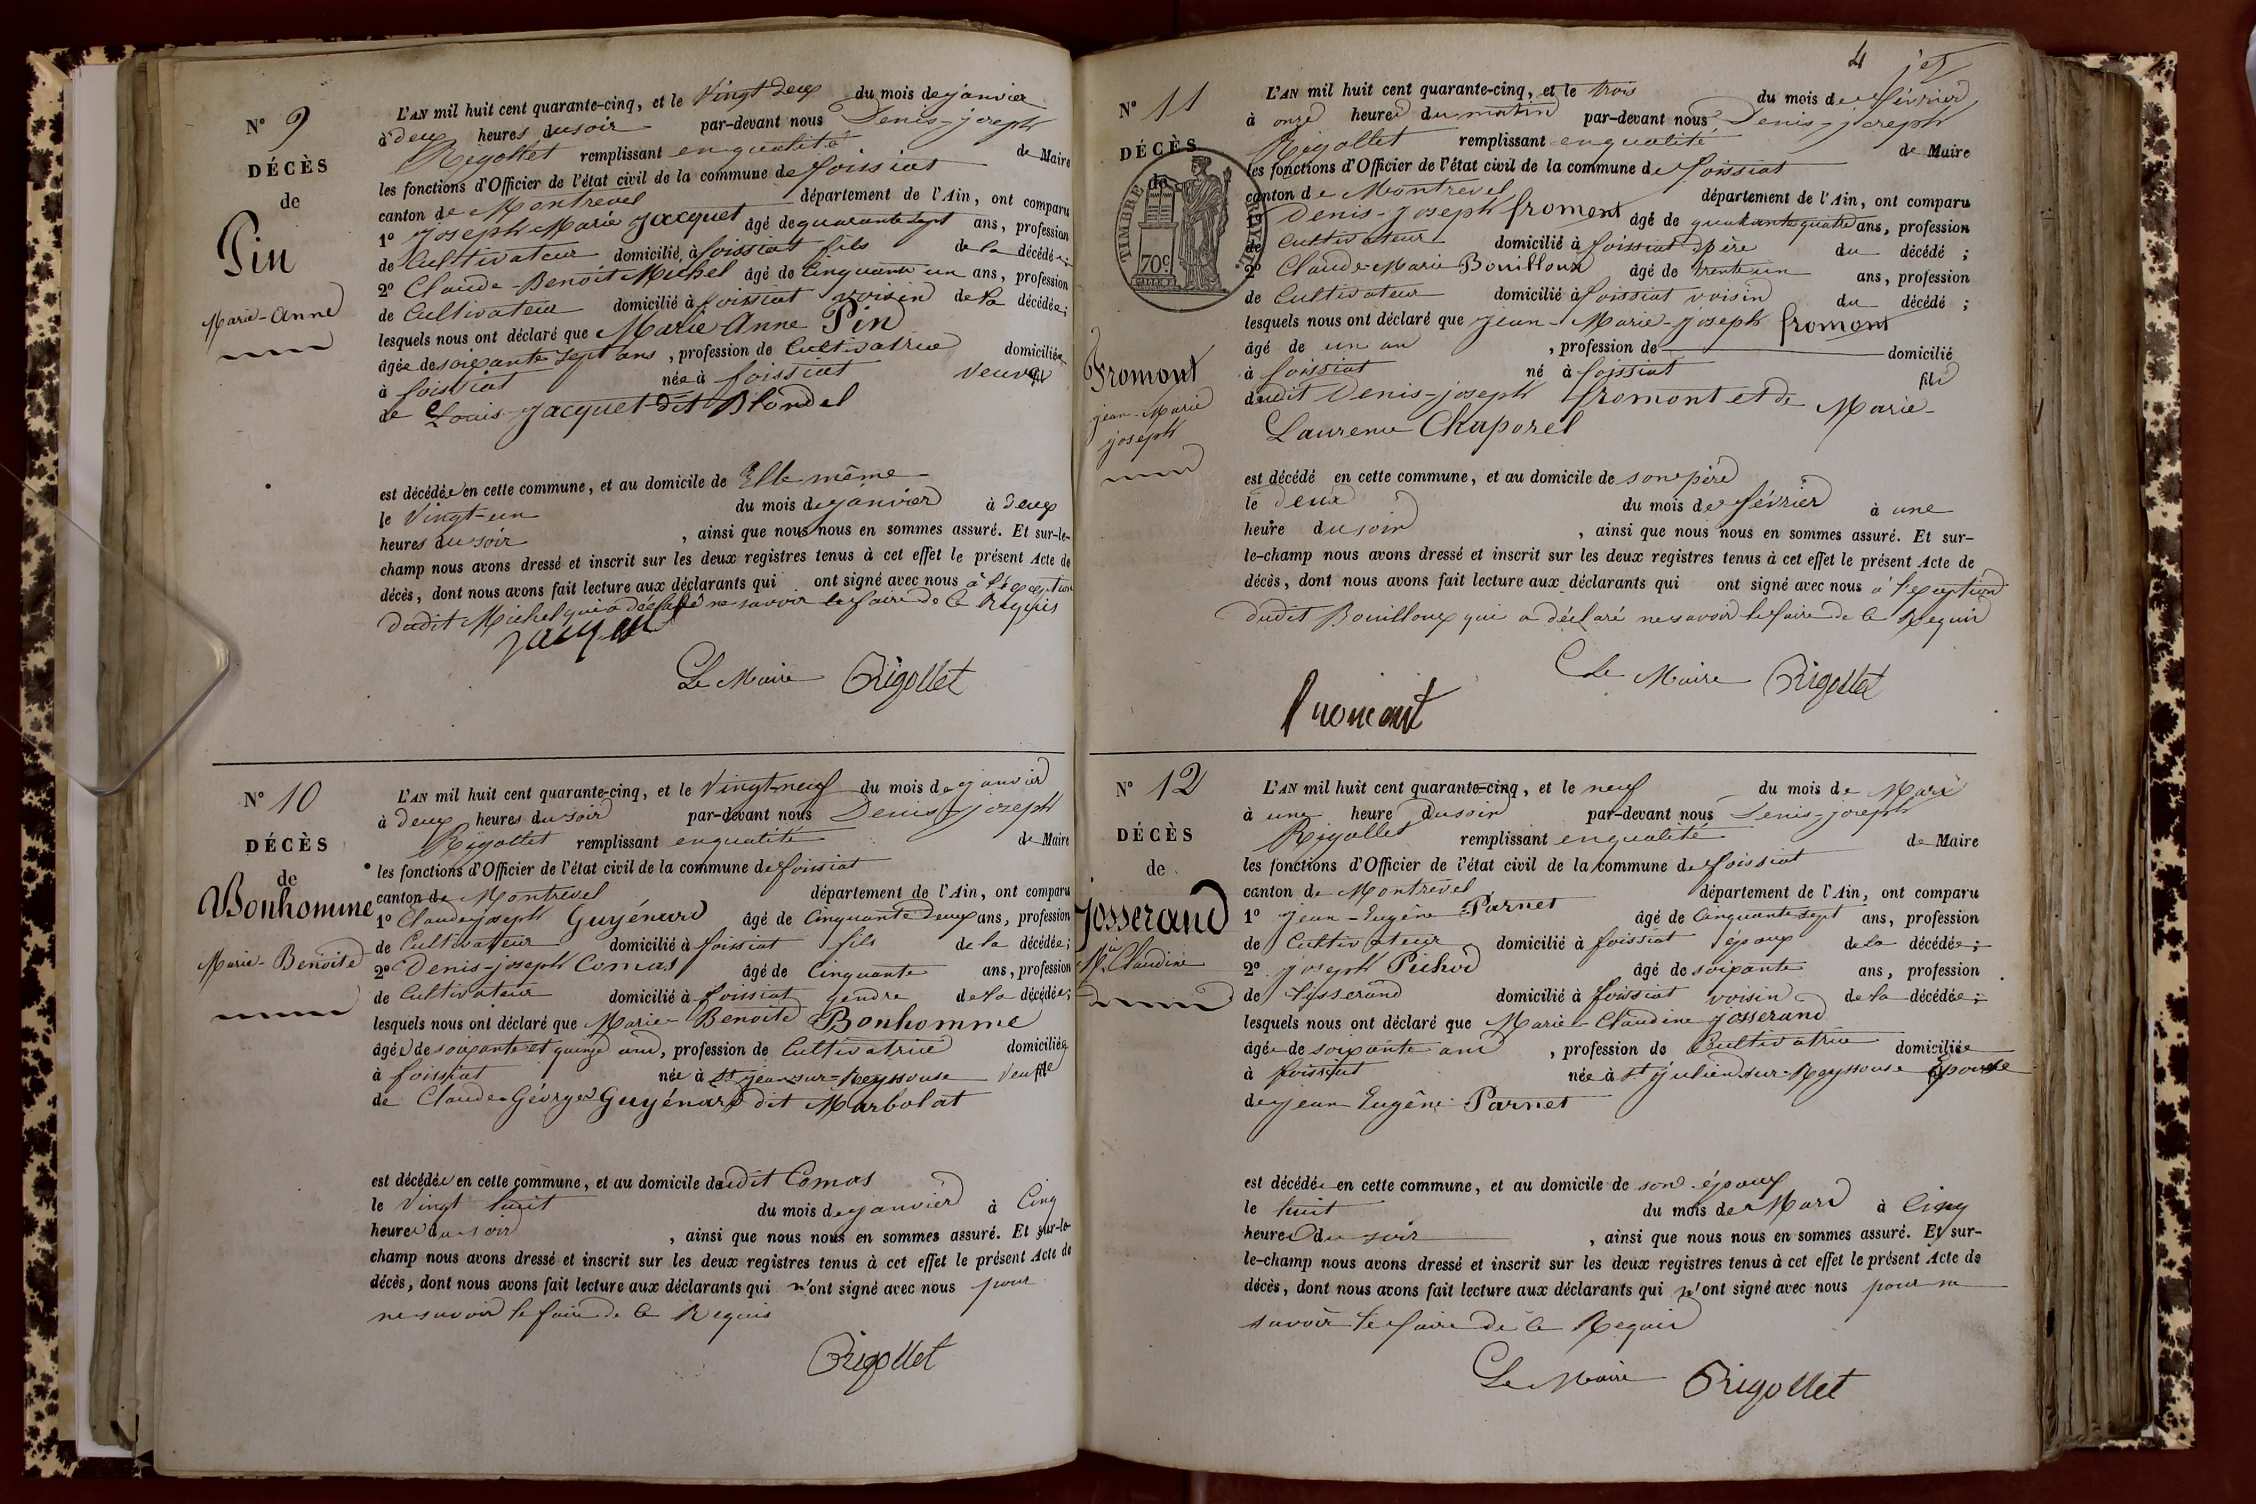 N° 9
DÉCÈS
de
Pin
Marie-Anne
L'AN mil huit cent quarante-cinq, et le Vingt deux du mois de janvier
à deux heures du soir par-devant nous Denis-joseph
Rigollet remplissant en qualité de Maire
les fonctions d'Officier de l'état civil de la commune de foissiat
canton de Montrevel département de l'Ain, ont comparu
1° Joseph Marie Jacquet âgé de quarante sept ans, profession
de Cultivateur domicilié à foissiat fils de la décédée;
2° Claude-Benoit Michel âgé de Cinquante un ans, profession
de Cultivateur domicilié à foissiat voisin de la décédée;
lesquels nous ont déclaré que Marie Anne Pin
âgée de soixante sept ans, profession de Cultivatrice domiciliée
à foissiat née à foissiat Veuve
de Louis Jacquet dit Blondel
est décédée en cette commune, et au domicile de Elle même
le Vingt-un du mois de janvier à deux
heures du soir, ainsi que nous nous en sommes assuré. Et sur-le-
champ nous avons dressé et inscrit sur les deux registres tenus à cet effet le présent Acte de
décès, dont nous avons fait lecture aux déclarants qui ont signé avec nous à l'exception
dudit Michel qui a déclaré ne savoir le faire de ce Requis
Jacquet
Le Maire Rigollet
N° 10
DÉCÈS
de
Bonhomme
Marie-Benoite
L'AN mil huit cent quarante-cinq, et le Vingt-neuf du mois de janvier
à deux heures du soir par-devant nous Denis-joseph
Rigollet remplissant en qualité de Maire
les fonctions d'Officier de l'état civil de la commune de foissiat
canton de Montrevel département de l'Ain, ont comparu
1° Claude-joseph Guyénard âgé de Cinquante Deux ans, profession
de Cultivateur domicilié à foissiat fils de la décédée;
2° Denis-joseph Comas âgé de Cinquante ans, profession
de Cultivateur domicilié à foissiat gendre de la décédée;
lesquels nous ont déclaré que Marie-Benoite Bonhomme
âgée de soixante et quinze ans, profession de Cultivatrice domiciliée
à foissiat née à St jean-sur-Reyssouse Veuve
de Claude-Géorges Guyénard dit Marbolat
est décédée en cette commune, et au domicile dudit Comas
le Vingt huit du mois de janvier à Cinq
heures du soir, ainsi que nous nous en sommes assuré. Et sur-le-
champ nous avons dressé et inscrit sur les deux registres tenus à cet effet le présent Acte de
décès, dont nous avons fait lecture aux déclarants qui n'ont signé avec nous pour
ne savoir le faire de ce Requis
Rigollet
4
N° 11
DÉCÈS
de
TIMBRE ROYAL
70c
Fromont
jean-Marie
joseph
L'AN mil huit cent quarante-cinq, et le trois du mois de février
à onze heures du matin par-devant nous Denis-joseph
Rigollet remplissant en qualité de Maire
les fonctions d'Officier de l'état civil de la commune de foissiat
canton de Montrevel département de l'Ain, ont comparu
Denis-Joseph fromont âgé de quarante quatre ans, profession
de Cultivateur domicilié à foissiat Père du décédé;
2° Claude-Marie Bouilloux âgé de trente un ans, profession
de Cultivateur domicilié à foissiat voisin du décédé;
lesquels nous ont déclaré que Jean-Marie-joseph fromont
âgé de un an, profession de domicilié
à foissiat né à foissiat fils
dudit Denis-joseph fromont et de Marie-
Laurence Chaporel
est décédé en cette commune, et au domicile de son père
le deux du mois de février à une
heure du soir, ainsi que nous nous en sommes assuré. Et sur-
le-champ nous avons dressé et inscrit sur les deux registres tenus à cet effet le présent Acte de
décès, dont nous avons fait lecture aux déclarants qui ont signé avec nous à l'exception
dudit Bouilloux qui a déclaré ne savoir le faire de ce Requis
Le Maire Rigollet
fromont
N° 12
DÉCÈS
de
Josserand
Mie Claudine
L'AN mil huit cent quarante-cinq, et le neuf du mois de Mars
à une heure du soir par-devant nous Denis-joseph
Rigollet remplissant en qualité de Maire
les fonctions d'Officier de l'état civil de la commune de foissiat
canton de Montrevel département de l'Ain, ont comparu
1° Jean-Eugêne Parnet âgé de Cinquante sept ans, profession
de Cultivateur domicilié à foissiat époux de la décédée;
2° joseph Pichod âgé de soixante ans, profession
de tisserand domicilié à foissiat voisin de la décédée;
lesquels nous ont déclaré que Marie-Claudine Josserand
âgée de soixante ans, profession de Cultivatrice domiciliée
à foissiat née à St julien-sur-Reyssouse Epouse
de jean Eugêne Parnet
est décédée en cette commune, et au domicile de son époux
le huit du mois de Mars à Cinq
heures du soir, ainsi que nous nous en sommes assuré. Et sur-
le-champ nous avons dressé et inscrit sur les deux registres tenus à cet effet le présent Acte de
décès, dont nous avons fait lecture aux déclarants qui n'ont signé avec nous pour ne
savoir le faire de ce Requis
Le Maire Rigollet